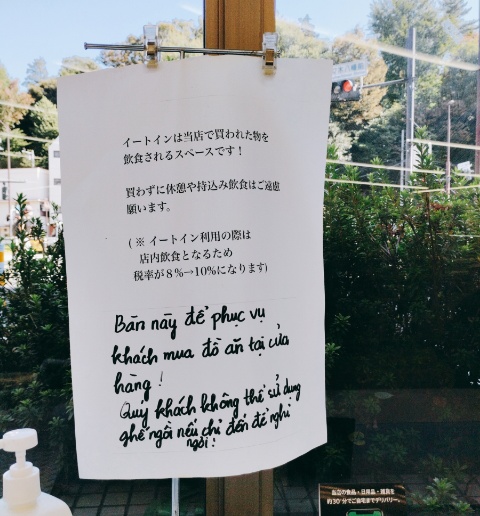 イートインは当店で買われた物を
飲食されるスペースです！
買わずに休憩や持込み飲食はご遠慮
願います。
(※ イートイン利用の際は
店内飲食となるため
税率が８%→10%になります)
Bàn này để phục vụ
khách mua đồ ăn tại cửa
hàng !
Quý khách không thể sử dụng
ghế ngồi nếu chỉ đến để nghỉ
ngơi!
当店の食品・日用品・雑貨を
約30分でご自宅までデリバリー